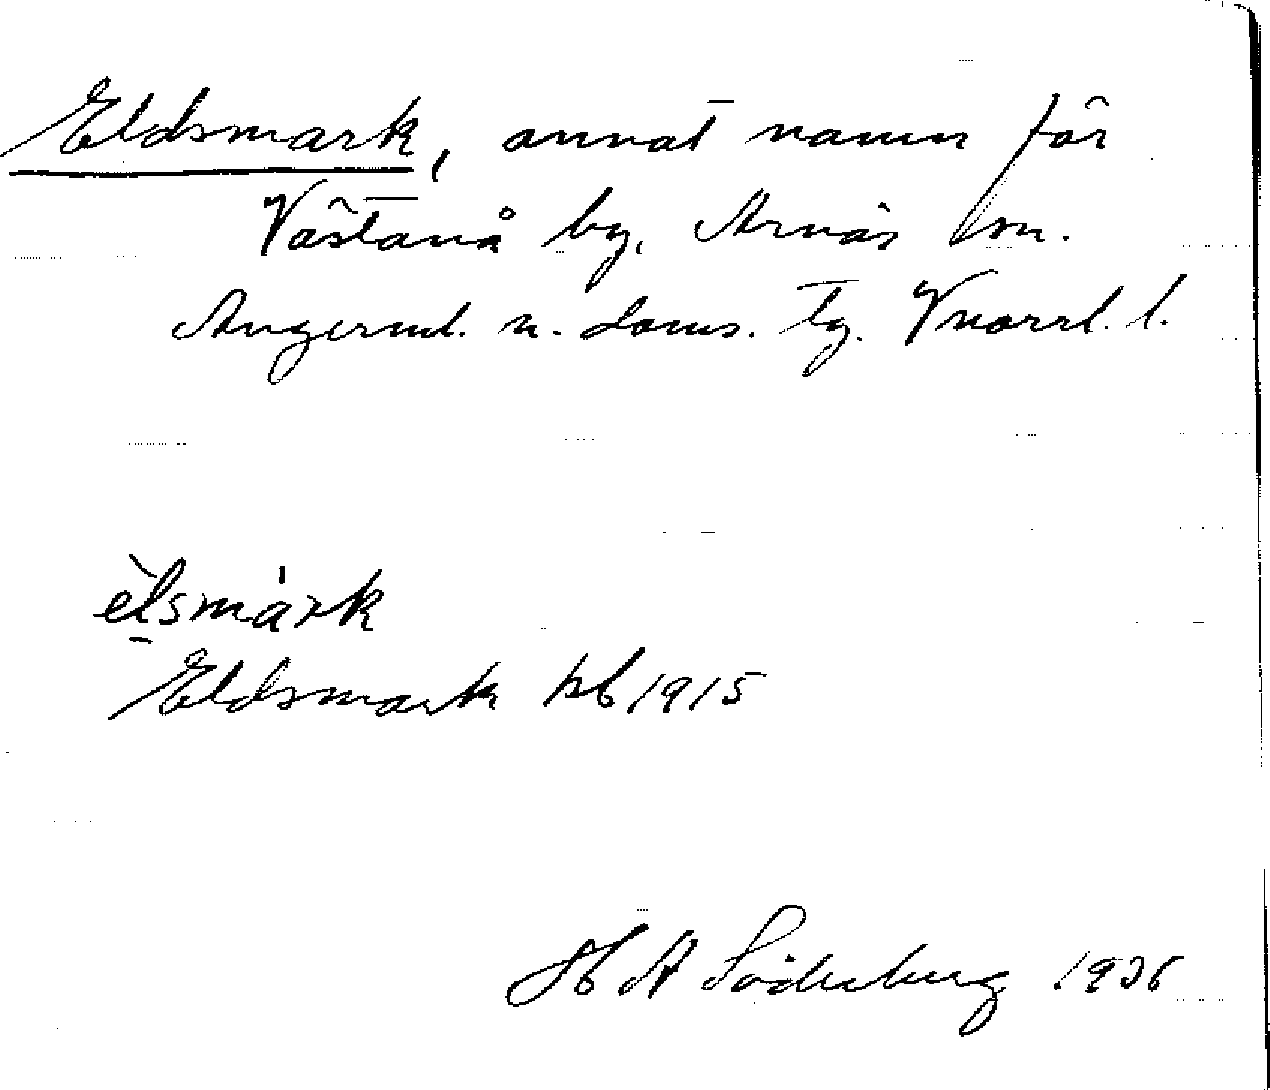 Eldsmark, annat namn för
Västanå by, Arnäs sn.
Ångerml. n. doms. tg. Vnorrl. l.
èlsmàrk
Eldsmark kb 1915
H A Söderberg 1936